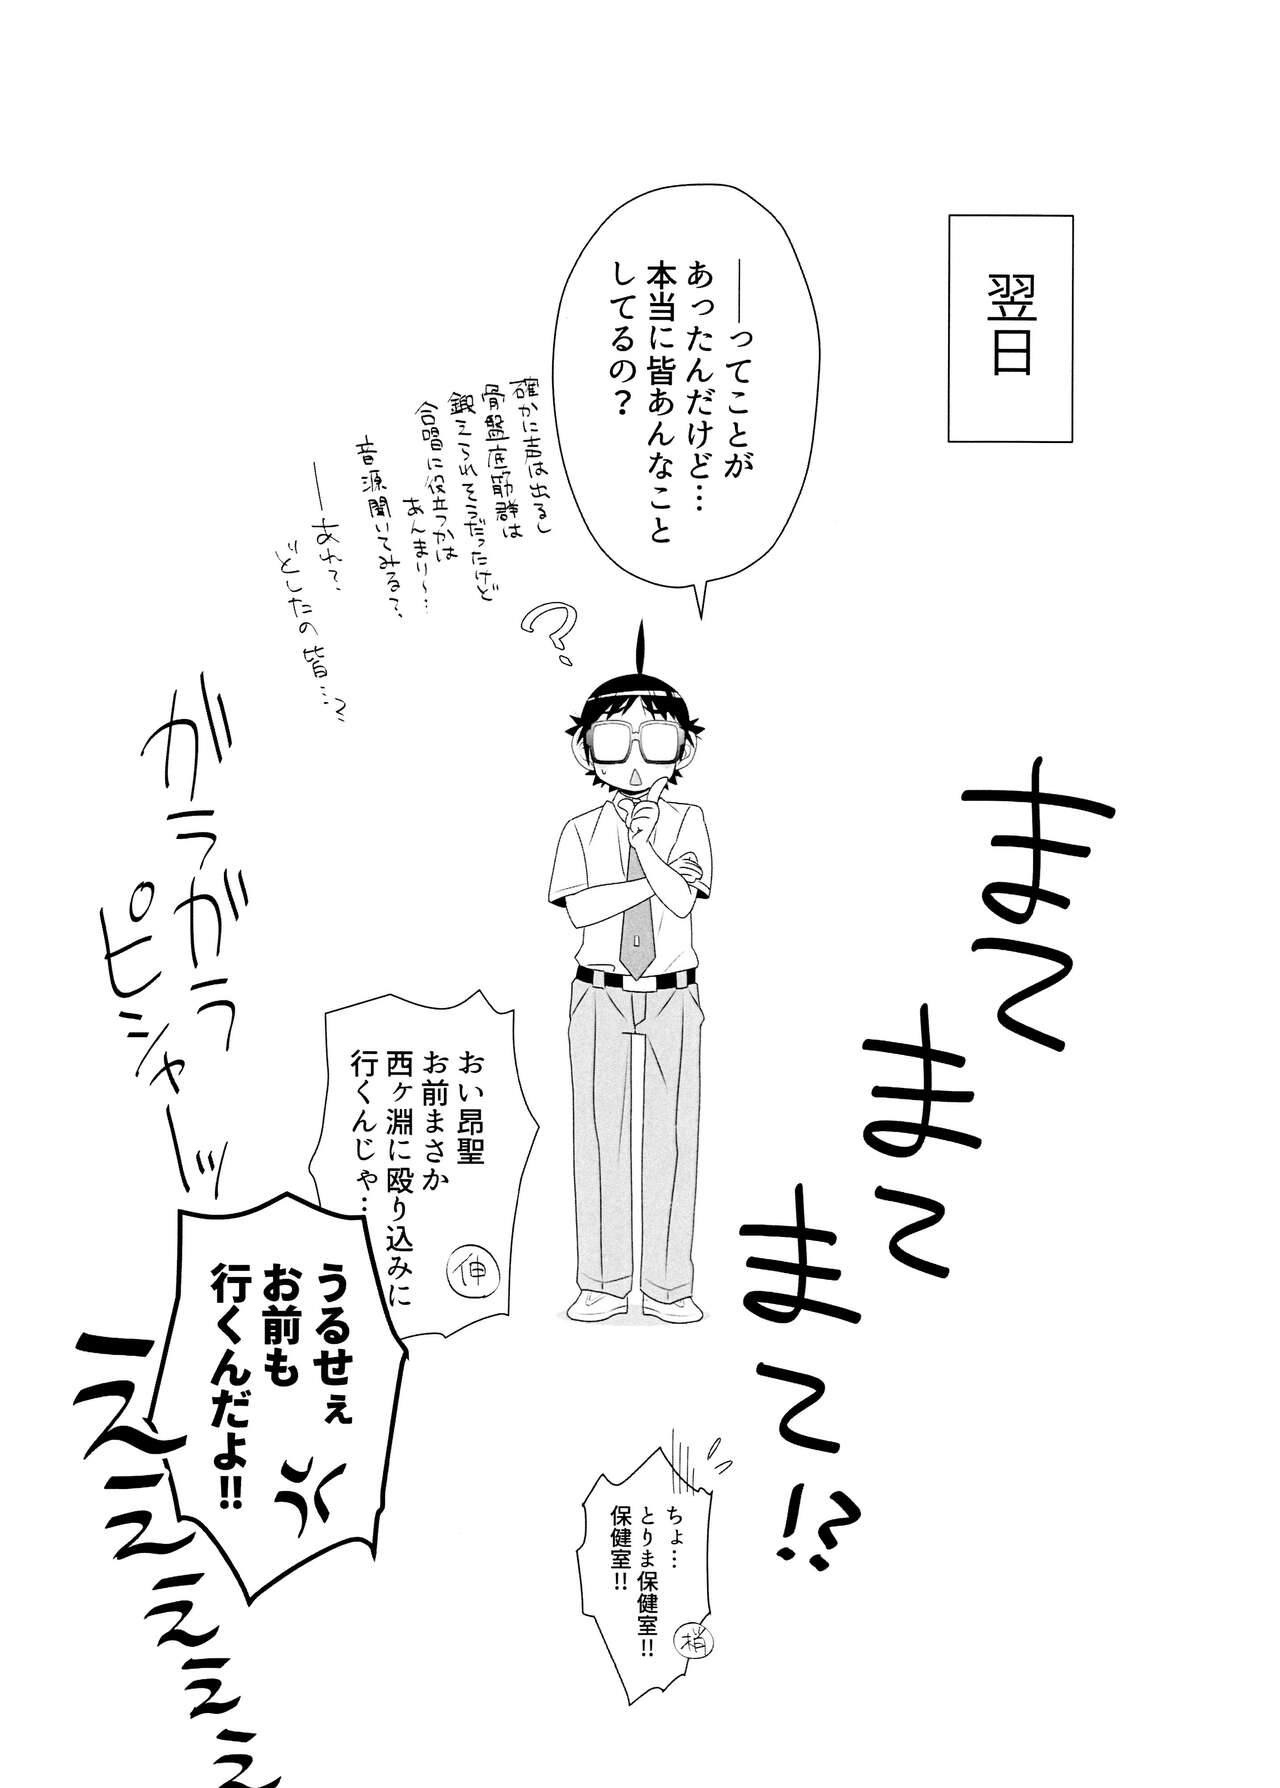 翌日
――ってことが
あったんだけど…
本当に皆あんなこと
してるの?
確かに声は出るし
骨盤底筋群は
鍛えられそうだったけど
合唱に役立つかは
あんまり〜…
音源聞いてみる?、
――あれ?、
どしたの皆…?
まて
まて
まて!?
ガラガラ
ピシャーッ
おい昂聖
お前まさか
西ヶ淵に殴り込みに
行くんじゃ…
伸
うるせぇ
お前も
行くんだよ!!
ええええええ
ちょ…
とりま保健室!!
保健室!!
梢